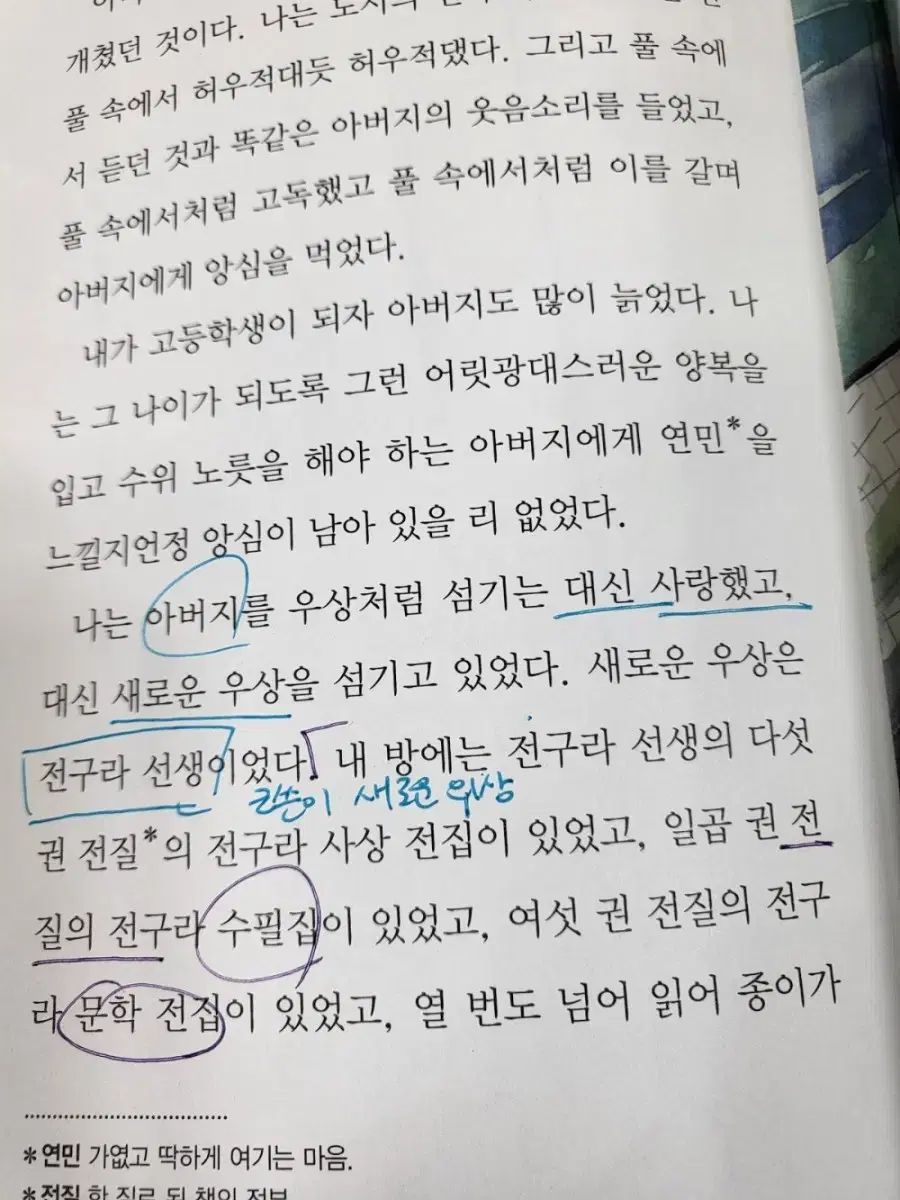 개쳤던 것이다. 나는 도시의
풀 속에서 허우적대듯 허우적댔다. 그리고 풀 속에
서 듣던 것과 똑같은 아버지의 웃음소리를 들었고,
풀 속에서처럼 고독했고 풀 속에서처럼 이를 갈며
아버지에게 앙심을 먹었다.
내가 고등학생이 되자 아버지도 많이 늙었다. 나
는 그 나이가 되도록 그런 어릿광대스러운 양복을
입고 수위 노릇을 해야 하는 아버지에게 연민*을
느낄지언정 앙심이 남아 있을 리 없었다.
나는 아버지를 우상처럼 섬기는 대신 사랑했고,
대신 새로운 우상을 섬기고 있었다. 새로운 우상은
전구라 선생이었다. 내 방에는 전구라 선생의 다섯
새로운 우상
권 전질*의 전구라 사상 전집이 있었고, 일곱 권 전
질의 전구라 수필집이 있었고, 여섯 권 전질의 전구
라 문학 전집이 있었고, 열 번도 넘어 읽어 종이가
*연민 가엾고 딱하게 여기는 마음.
*전질 한 질로 된 책의 전부